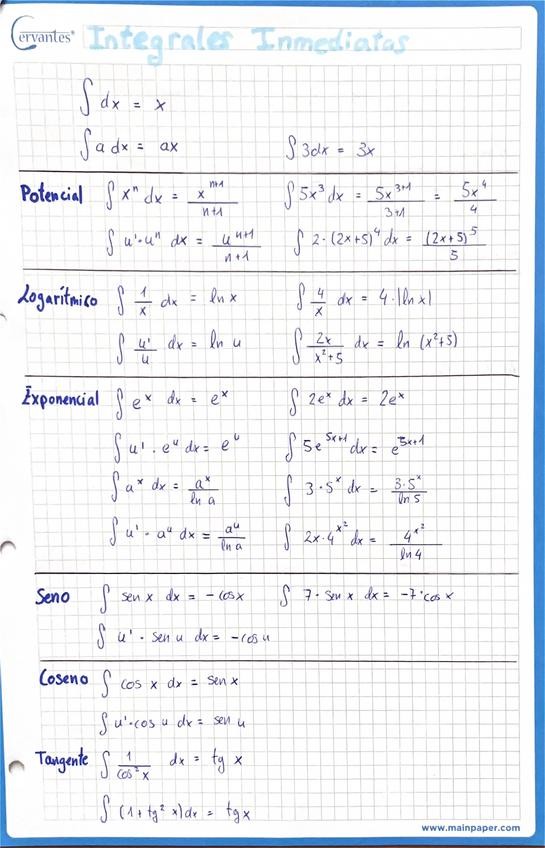 Cervantes® Integrales Inmediatas
∫ dx = x
∫ a dx = ax ∫ 3dx = 3x
Potencial ∫ xⁿ dx = xⁿ⁺¹/n+1 ∫ 5x³ dx = 5x³⁺¹/3+1 = 5x⁴/4
∫ u'·uⁿ dx = uⁿ⁺¹/n+1 ∫ 2·(2x+5)⁴ dx = (2x+5)⁵/5
Logarítmico ∫ 1/x dx = ln x ∫ 4/x dx = 4·|ln x|
∫ u'/u dx = ln u ∫ 2x/x²+5 dx = ln (x²+5)
Exponencial ∫ eˣ dx = eˣ ∫ 2eˣ dx = 2eˣ
∫ u' · eᵘ dx = eᵘ ∫ 5e⁵ˣ⁺¹ dx = e⁵ˣ⁺¹
∫ aˣ dx = aˣ/ln a ∫ 3·5ˣ dx = 3·5ˣ/ln 5
∫ u' · aᵘ dx = aᵘ/ln a ∫ 2x·4^x² dx = 4^x²/ln 4
Seno ∫ sen x dx = -cos x ∫ 7·sen x dx = -7·cos x
∫ u' · sen u dx = -cos u
Coseno ∫ cos x dx = sen x
∫ u'·cos u dx = sen u
Tangente ∫ 1/cos² x dx = tg x
∫ (1+tg² x)dx = tg x
www.mainpaper.com